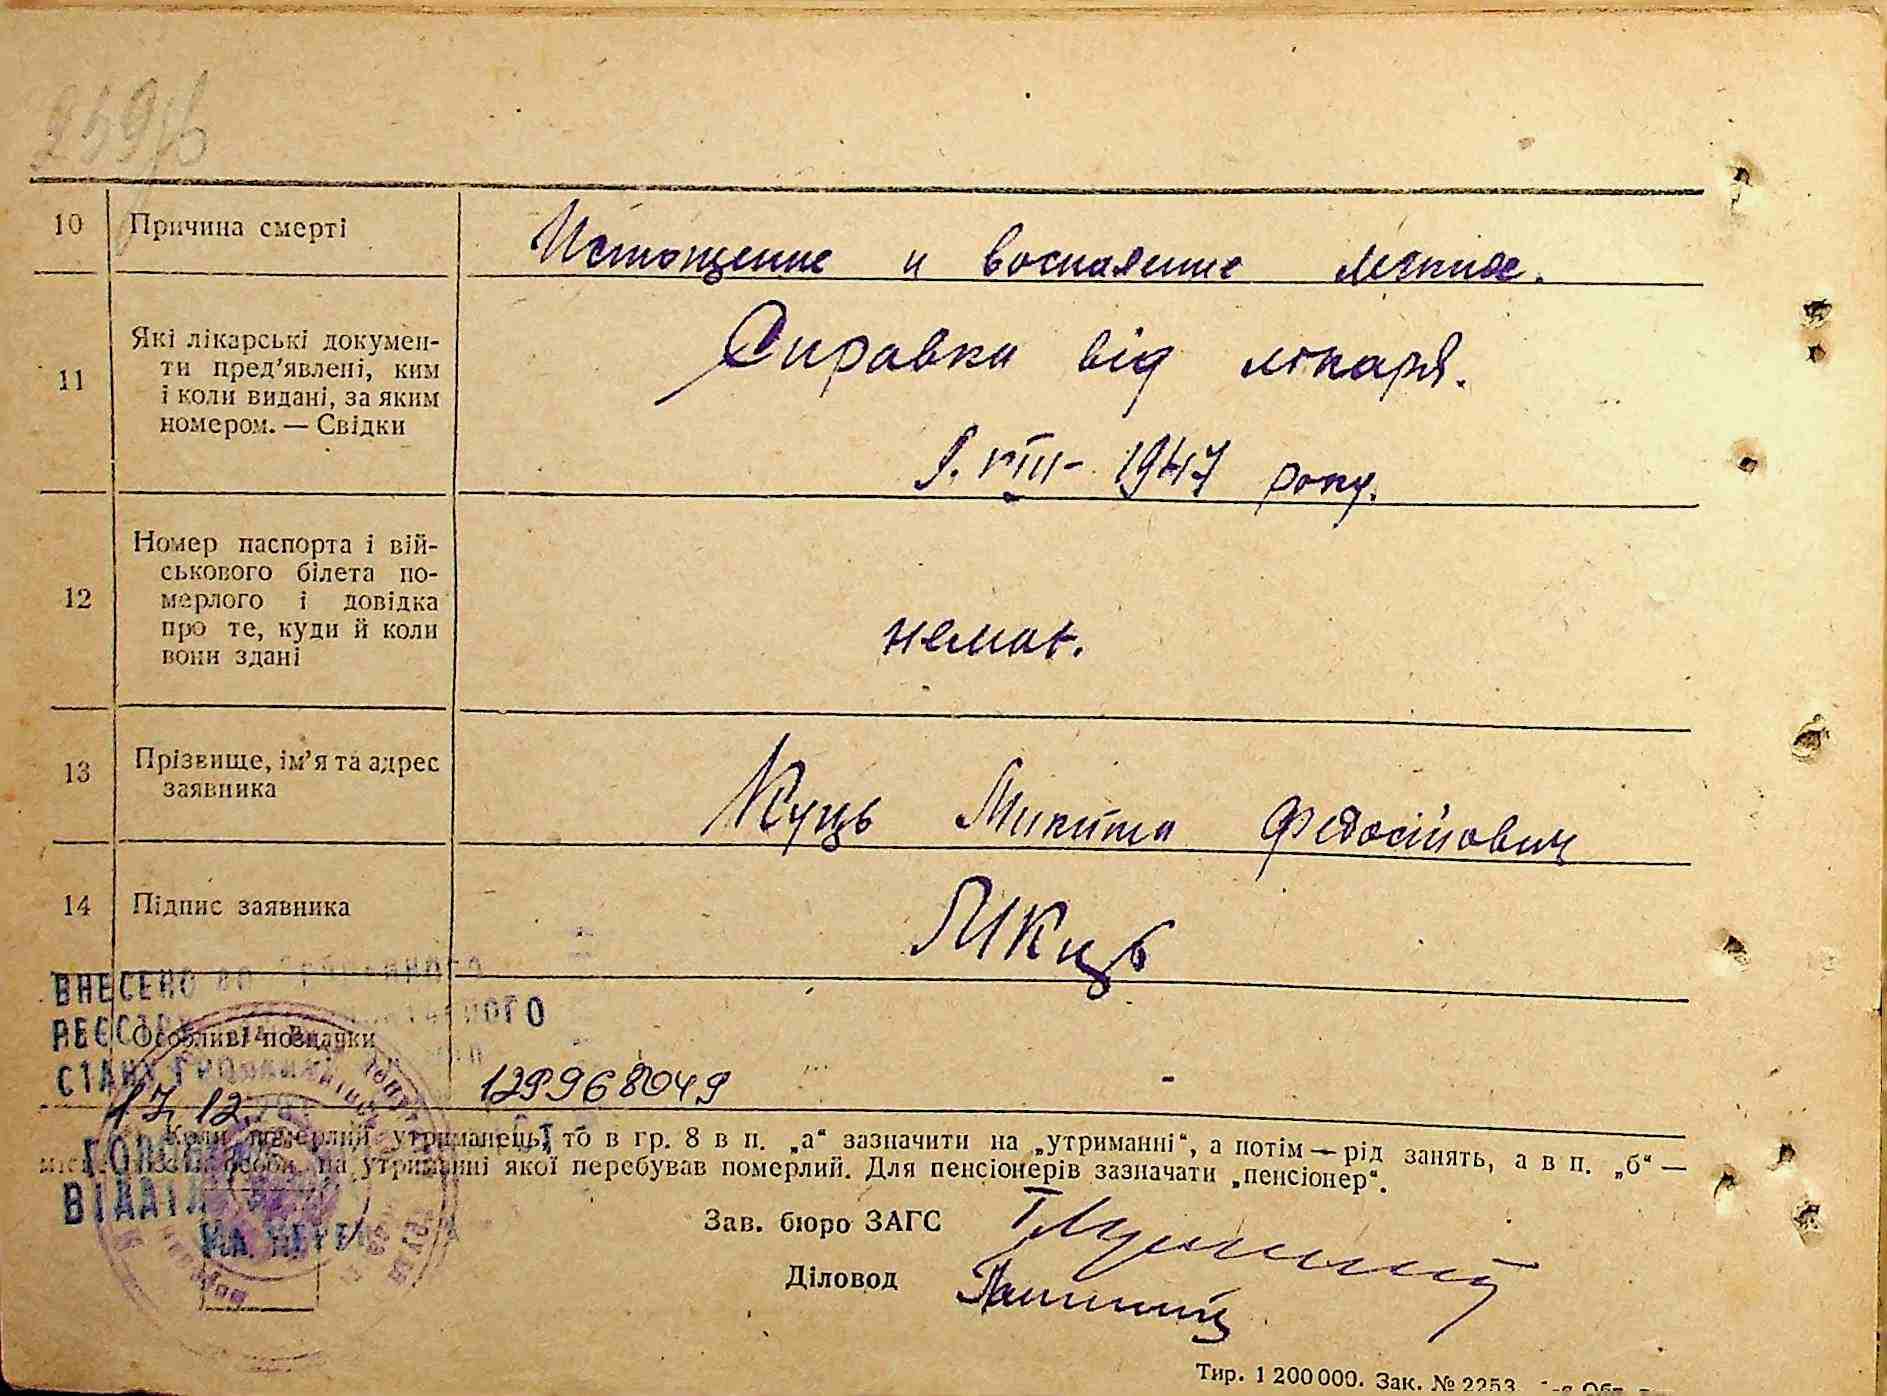 10 Причина смерті
Истощение и воспаление легких.
11 Які лікарські докумен-
ти пред’явлені, ким
і коли видані, за яким
номером. — Свідки
Справка від лікаря.
VIII- 1947 року.
12 Номер паспорта і вій-
ськового білета по-
мерлого і довідка
про те, куди й коли
вони здані
немає.
13 Прізвище, ім’я та адрес
заявника
Куць Микита Федосійович
14 Підпис заявника
МКуць
ВНЕСЕНО ДО
Особливі позначки
129968049
17. 12.
Коли померлий утриманець, то в гр. 8 в п. „а“ зазначити на „утриманні“, а потім — рід занять, а в п. „б“ —
особи, на утриманні якої перебував померлий. Для пенсіонерів зазначати „пенсіонер“.
Зав. бюро ЗАГС
Діловод
Тир. 1 200 000. Зак. № 2253.